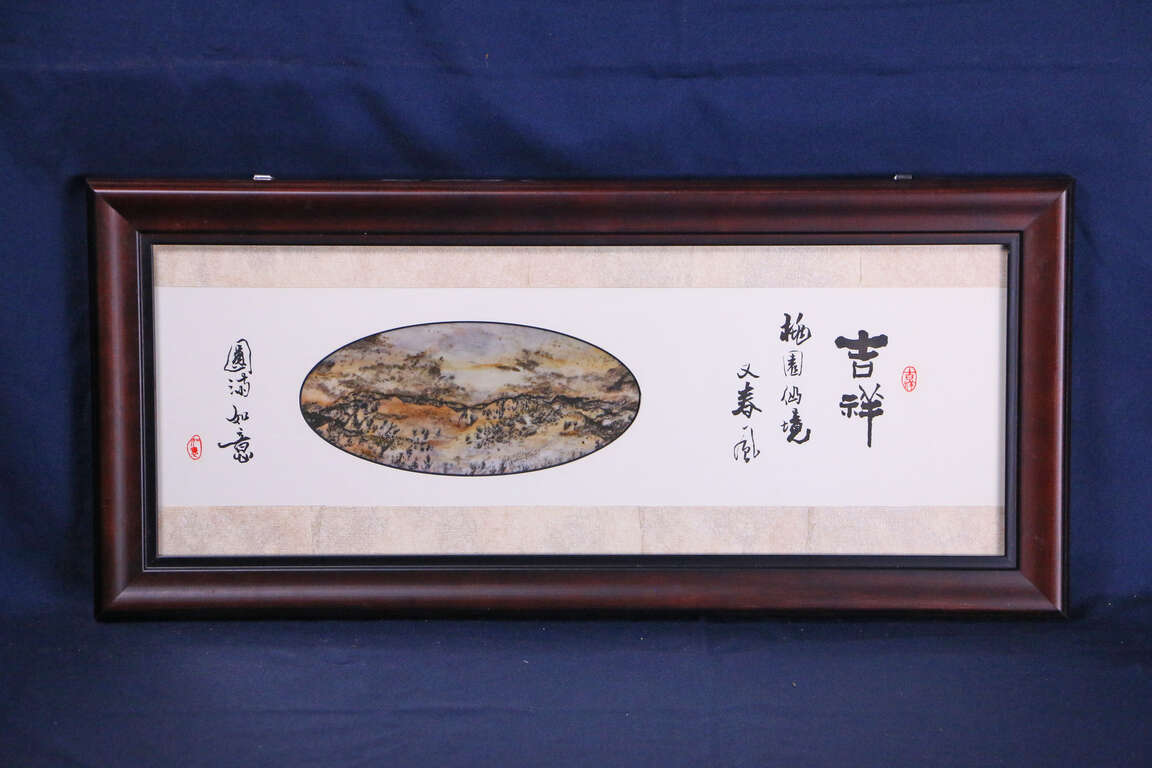 吉祥
桃園仙境
又春風
圓滿如意